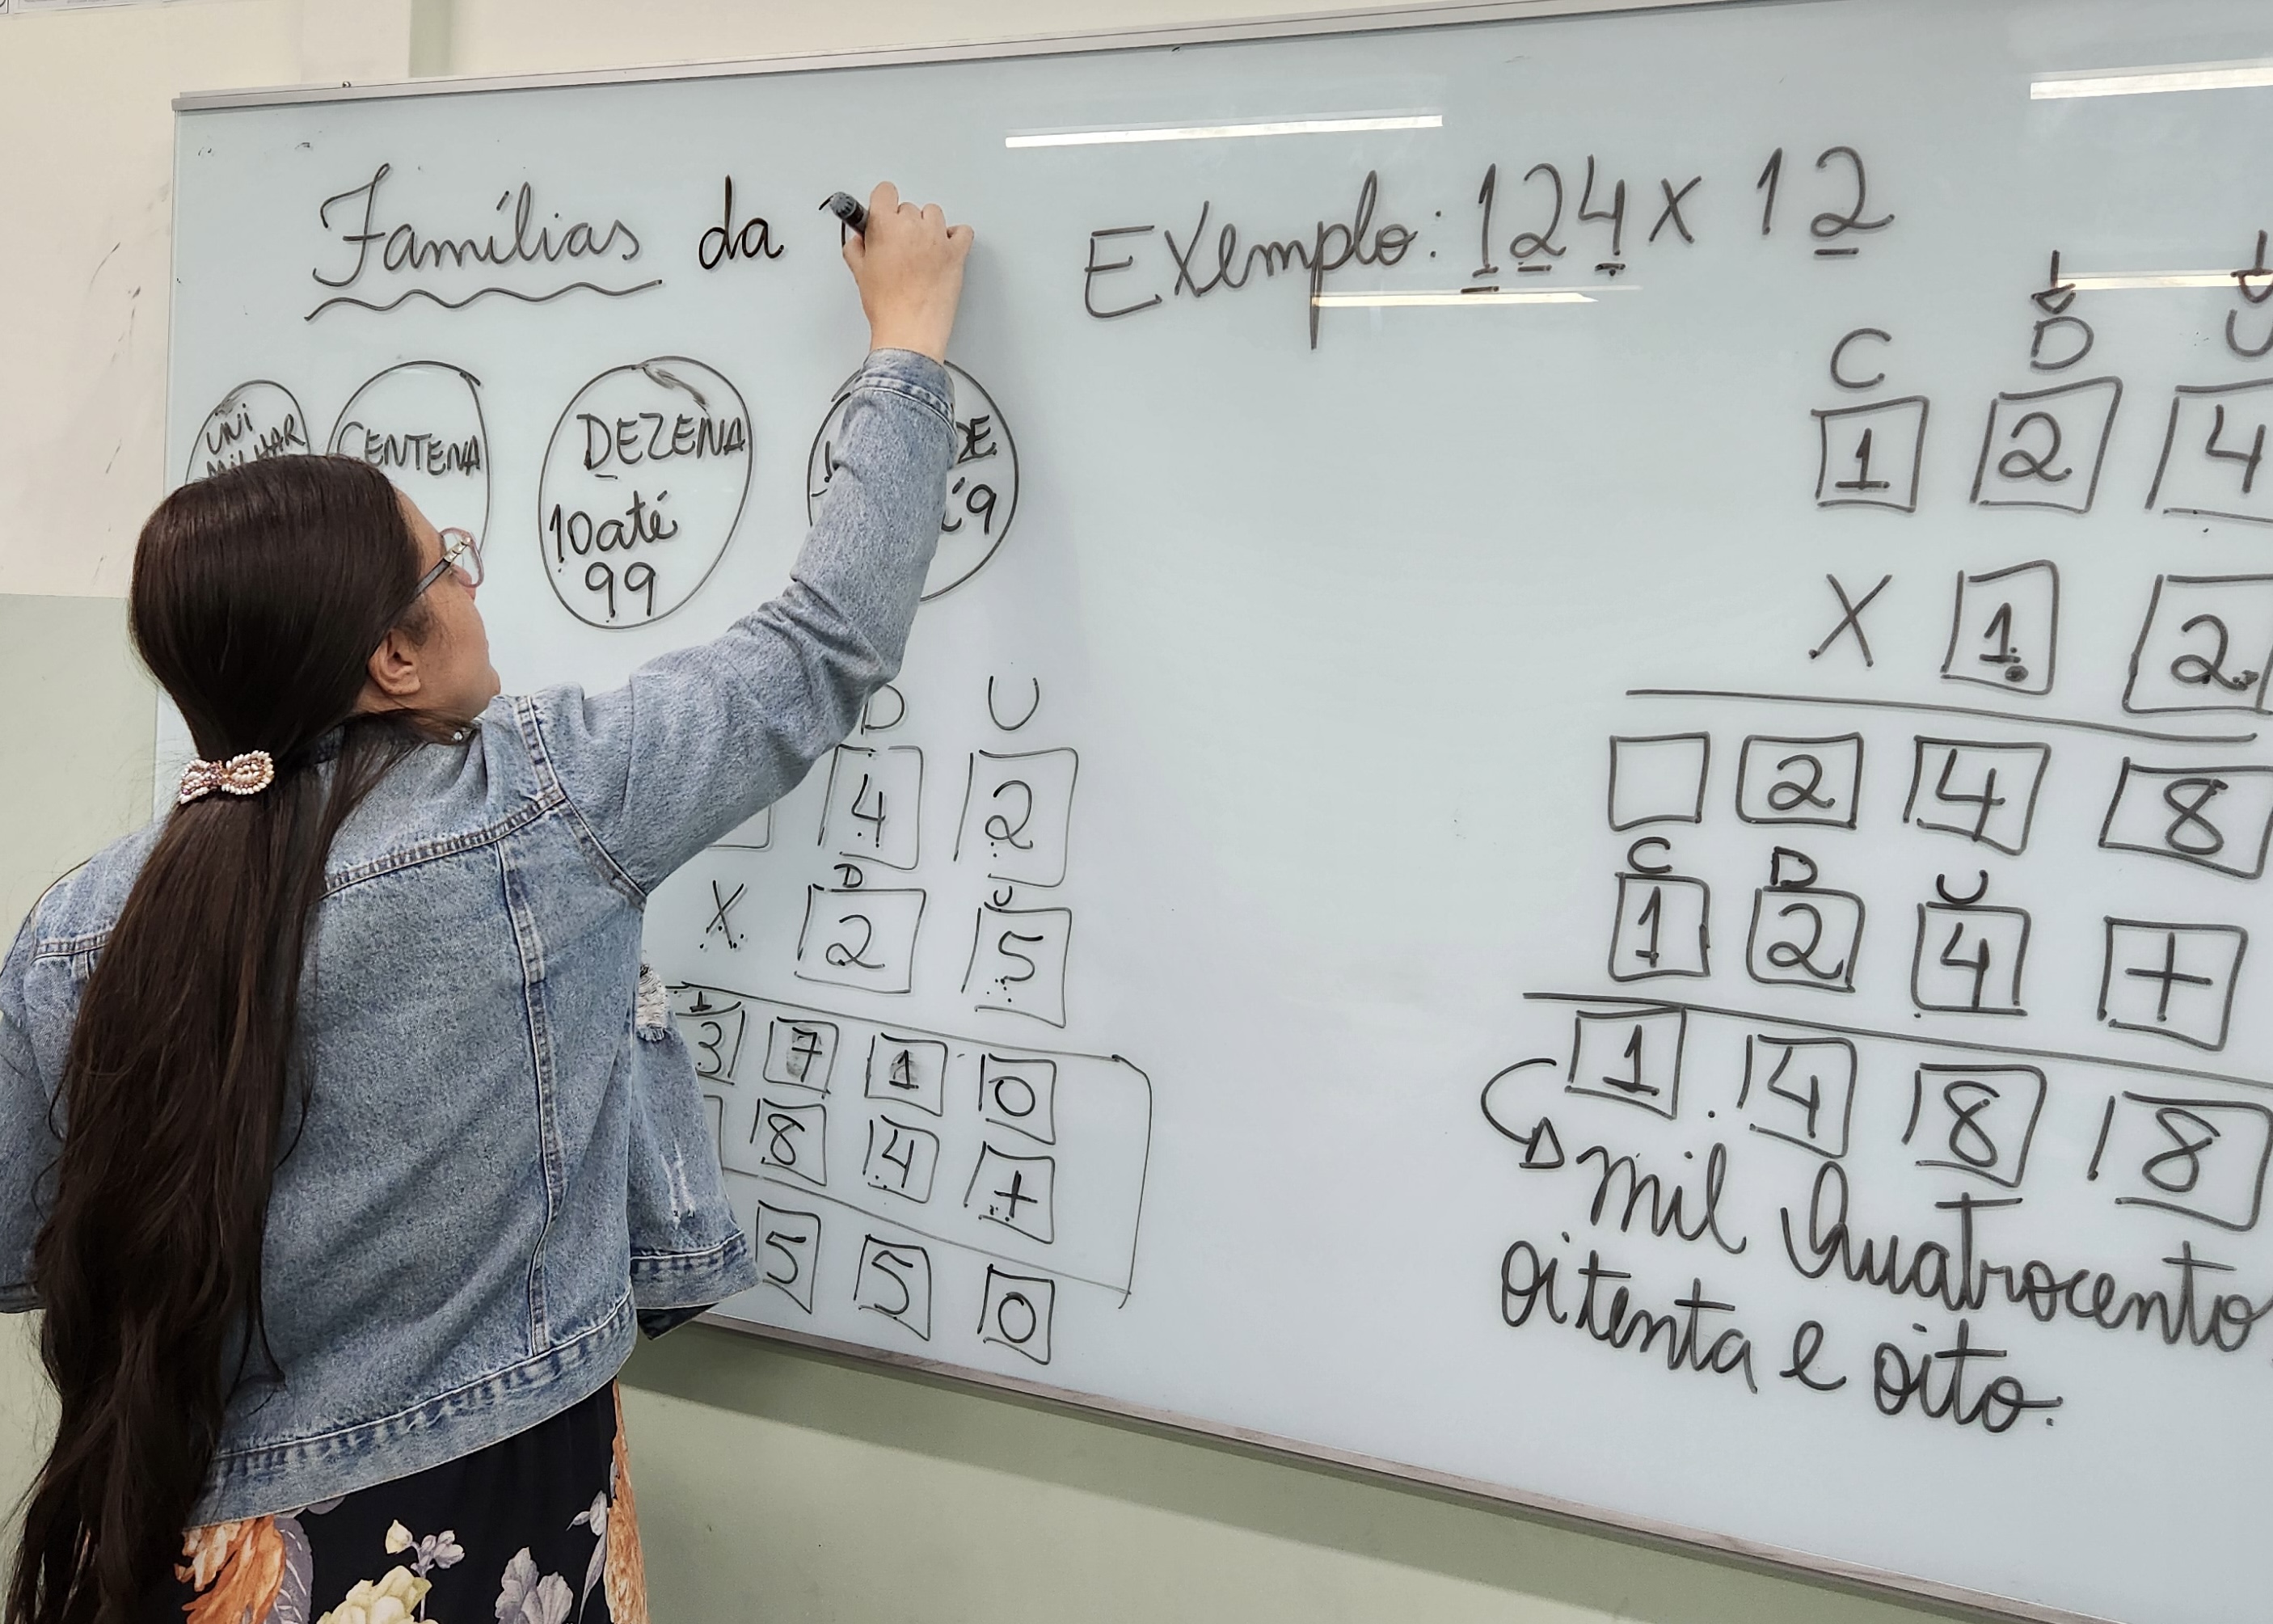 Famílias da
Exemplo: 124 x 12
UNI
MILHAR
CENTENA
DEZENA
10 até
99
DE
9
D U
4 2
D U
X 2 5
1
3 7 1 0
8 4 +
5 5 0
C D U
1 2 4
X 1 2
2 4 8
C D U
1 2 4 +
1.488
mil quatrocento
oitenta e oito.